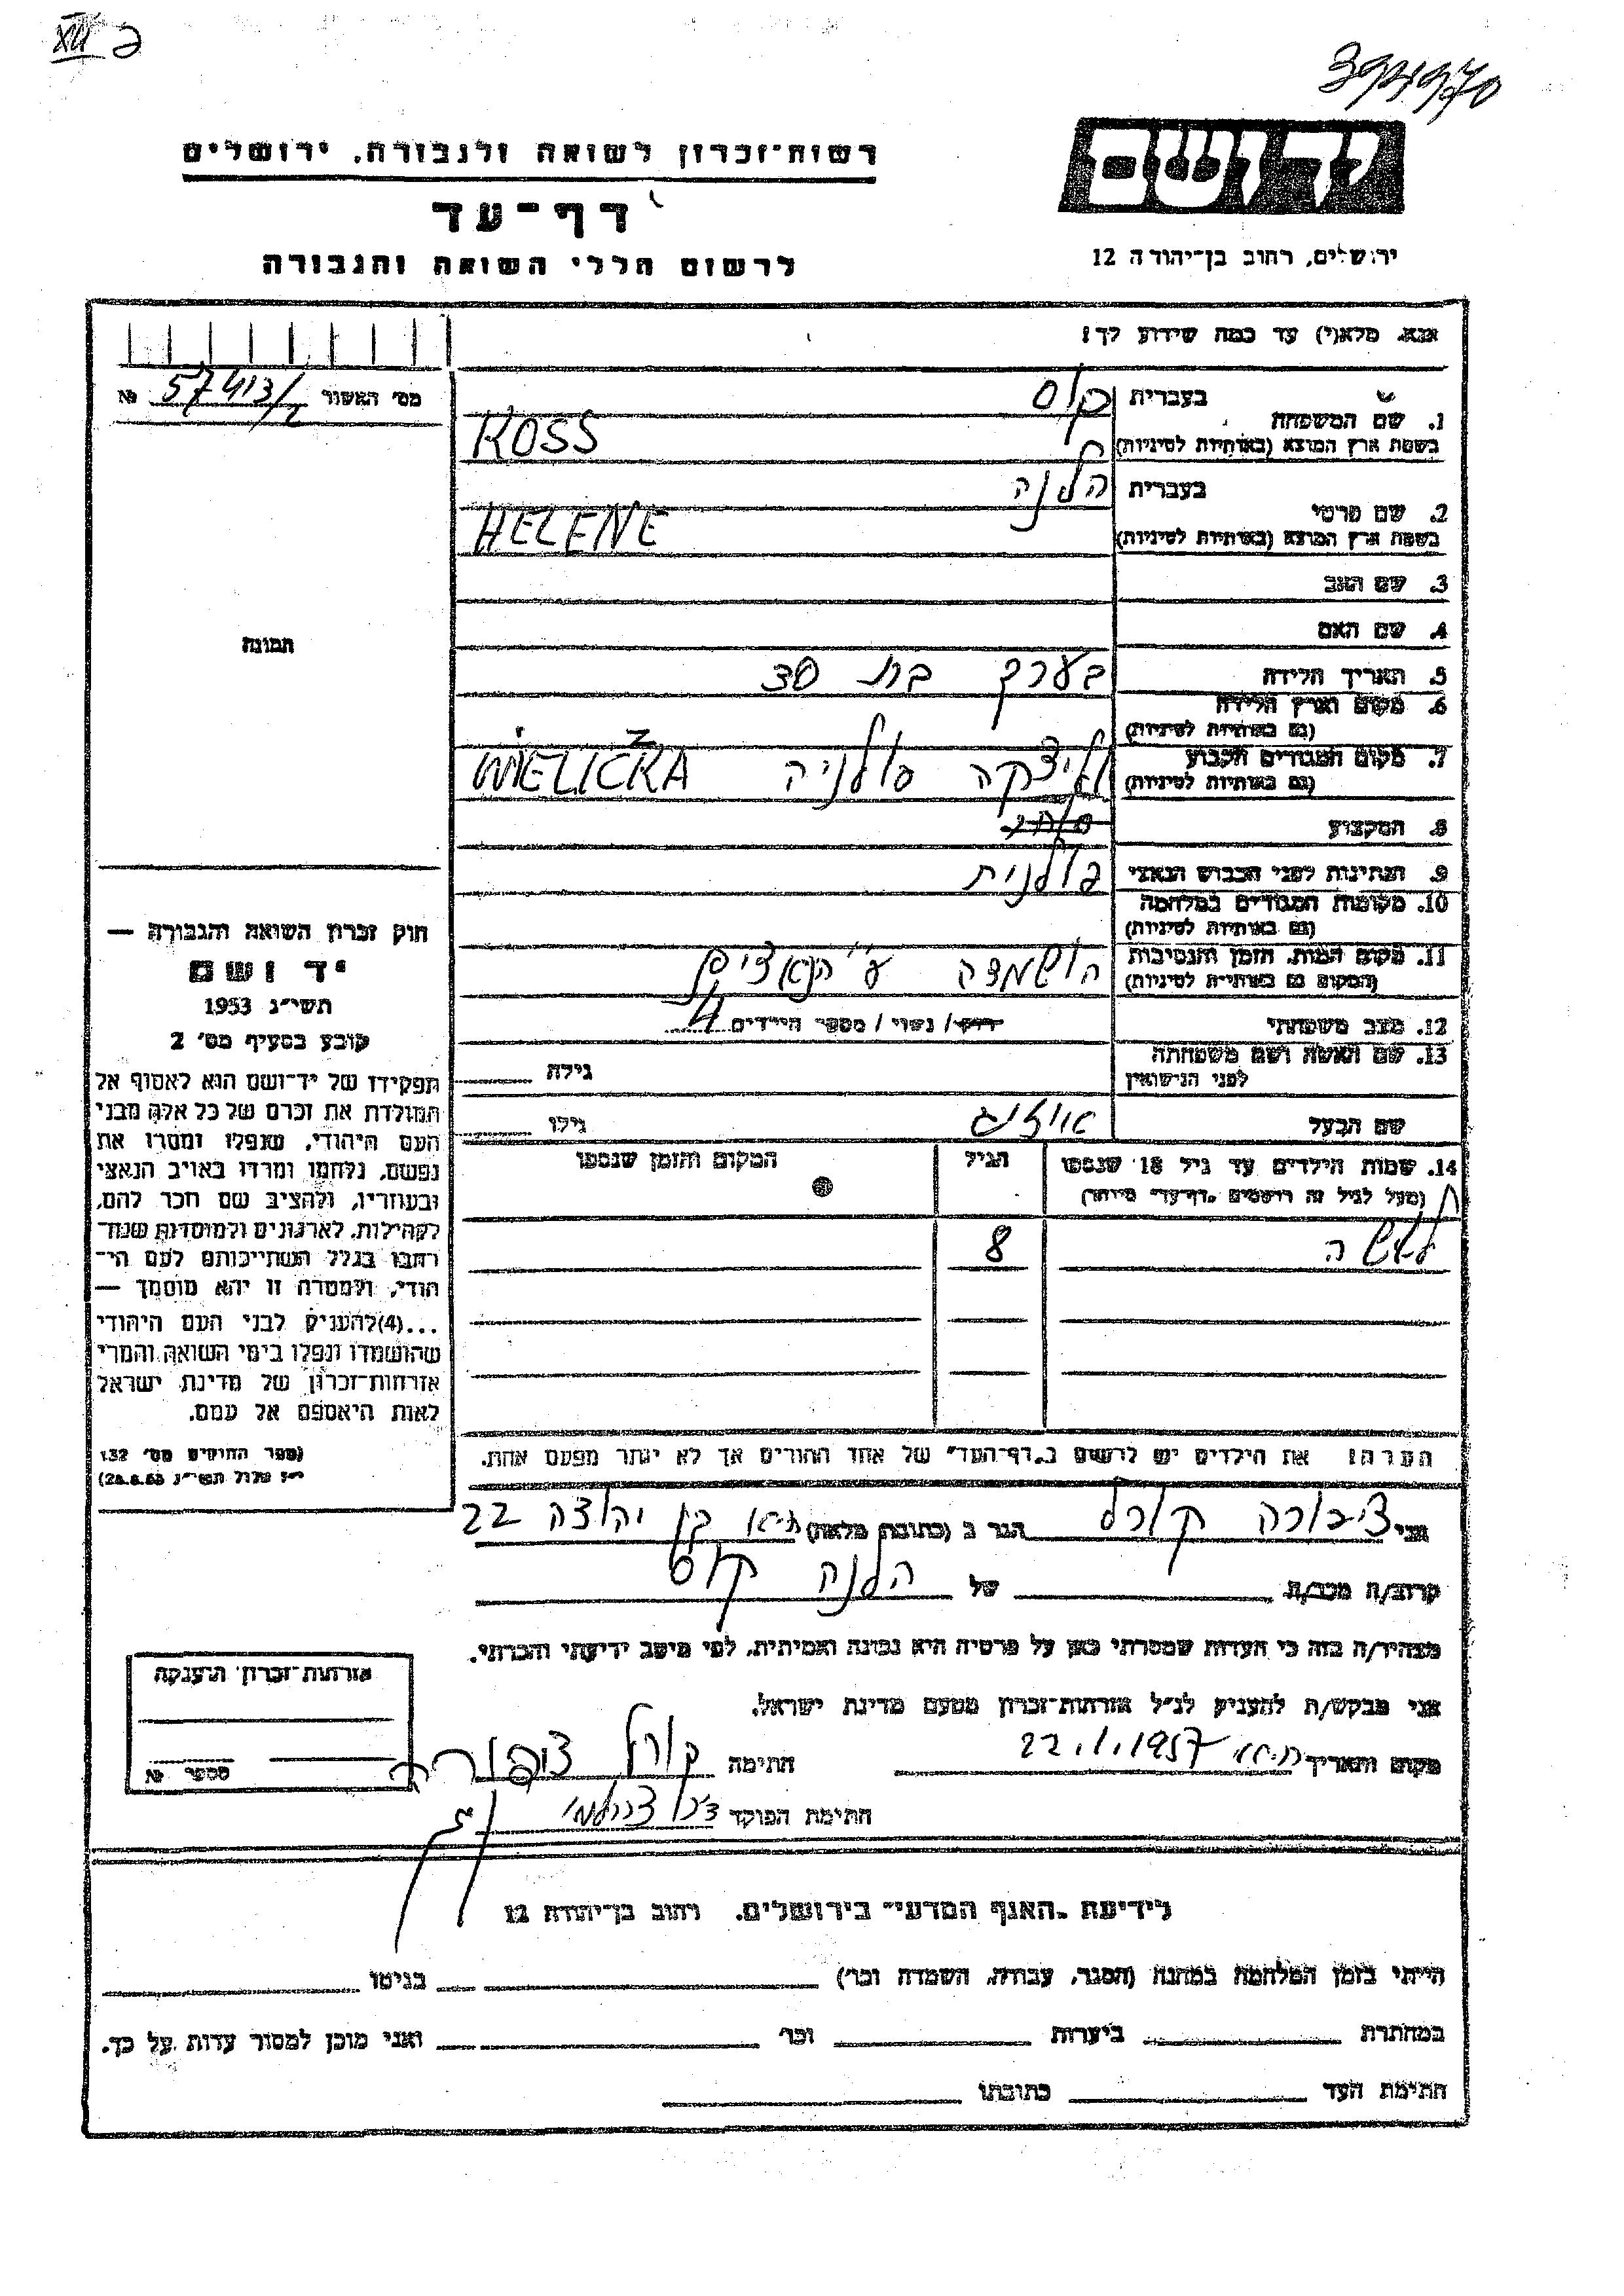 XIII ב
394970
יד ושם
ירושלים, רחוב בן-יהודה 12
רשות-זכרון לשואה ולגבורה, ירושלים
דף-עד
לרשום חללי השואה והגבורה
אנא, מלא(י) עד כמה שידוע לך!
מס' האשור 57413/2 №
1. שם המשפחה
בעברית קוס
בשפת ארץ המוצא (באותיות לטיניות) KOSS
2. שם פרטי
בעברית הלנה
בשפת ארץ המוצא (באותיות לטיניות) HELENE
3. שם האב
4. שם האם
5. תאריך הלידה בערך בת 30
6. מקום וארץ הלידה
(גם באותיות לטיניות)
7. מקום המגורים הקבוע וליצקה פולניה WIELICZKA
(גם באותיות לטיניות)
8. המקצוע
9. הנתינות לפני הכבוש הנאצי פולנית
10. מקומות המגורים במלחמה
(גם באותיות לטיניות)
11. מקום המות, הזמן והנסיבות הושמדה ע"י הנאצים
(המקום גם באותיות לטיניות)
12. מצב משפחתי רווק / נשוי / מספר הילדים
13. שם האשה ושם משפחתה
לפני הנישואין
גילה
שם הבעל
גילו
14. שמות הילדים עד גיל 18 שנספו
(מעל לגיל זה רושמים "דף-עד" מיוחד)
הגיל
המקום והזמן שנספו
8
הערה: את הילדים יש לרשום ב"דף-העד" של אחד ההורים אך לא יותר מפעם אחת.
תמונה
חוק זכרון השואה והגבורה —
יד ושם
תשי"ג 1953
קובע בסעיף מס' 2
תפקידו של יד-ושם הוא לאסוף אל
המולדת את זכרם של כל אלה מבני
העם היהודי, שנפלו ומסרו את
נפשם, נלחמו ומרדו באויב הנאצי
ובעוזריו, ולהציב שם וזכר להם,
לקהילות, לארגונים ולמוסדות שנח-
רבו בגלל השתייכותם לעם הי-
הודי, ולמטרה זו יהא מוסמך —
...(4) להעניק לבני העם היהודי
שהושמדו ונפלו בימי השואה והמרי
אזרחות-זכרון של מדינת ישראל
לאות היאספם אל עמם.
(ספר החוקים מס' 132
י"ז אלול תשי"ג 28.8.53)
אני ציפורה קורל הגר ב (כתובת מלאה) ת"א בן יהודה 22
קרוב/ה מכר/ה של הלנה קוס
מצהיר/ה בזה כי העדות שמסרתי כאן על פרטיה היא נכונה ואמיתית, לפי מיטב ידיעתי והכרתי.
אני מבקש/ת להעניק לנ"ל אזרחות-זכרון מטעם מדינת ישראל.
מקום ותאריך ת"א 22.1.1957 חתימה קורל ציפורה
חתימת הפוקד
אזרחות-זכרון הוענקה
מספר №
לידיעת "האגף המדעי" בירושלים, רחוב בן-יהודה 12
הייתי בזמן המלחמה במחנה (הסגר, עבודה, השמדה וכו') בגיטו
במחתרת ביערות וכו' ואני מוכן למסור עדות על כך.
חתימת העד כתובתו